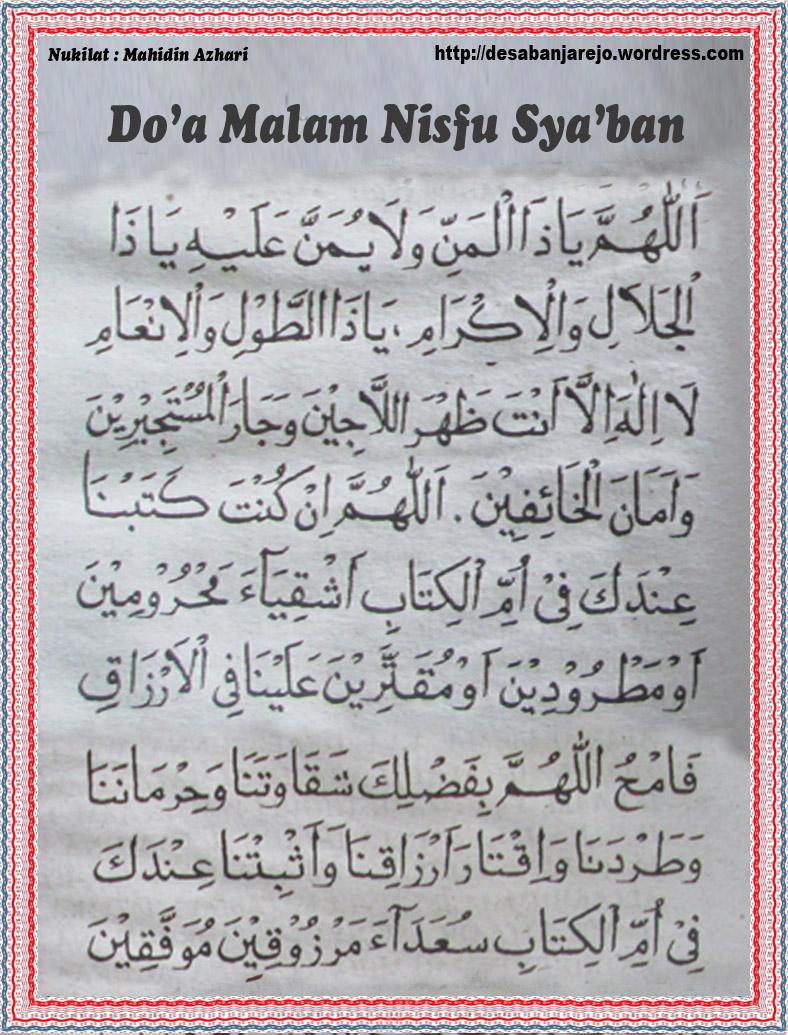 Nukilat : Mahidin Azhari
http://desabanjarejo.wordress.com
Do’a Malam Nisfu Sya’ban
اَللّٰهُمَّ يَاذَا الْمَنِّ وَلَا يُمَنَّ عَلَيْهِ يَاذَا
الْجَلَالِ وَالْاِكْرَامِ ، يَاذَا الطَّوْلِ وَالْاِنْعَامِ
لَا اِلٰهَ اِلَّا اَنْتَ ظَهْرَ اللَّاجِيْنَ وَجَارَ الْمُسْتَجِيْرِيْنَ
وَاَمَانَ الْخَائِفِيْنَ . اَللّٰهُمَّ اِنْ كُنْتَ كَتَبْنَا
عِنْدَكَ فِيْ اُمِّ الْكِتَابِ اَشْقِيَآءَ مَحْرُوْمِيْنَ
اَوْ مَطْرُوْدِيْنَ اَوْ مُقَتَّرِيْنَ عَلَيْنَا فِي الْاَرْزَاقِ
فَامْحُ اللّٰهُمَّ بِفَضْلِكَ شَقَاوَتَنَا وَحِرْمَانَنَا
وَطَرْدَنَا وَاِقْتَارَ اَرْزَاقِنَا وَاَثْبِتْنَا عِنْدَكَ
فِيْ اُمِّ الْكِتَابِ سُعَدَآءَ مَرْزُوْقِيْنَ مُوَفَّقِيْنَ